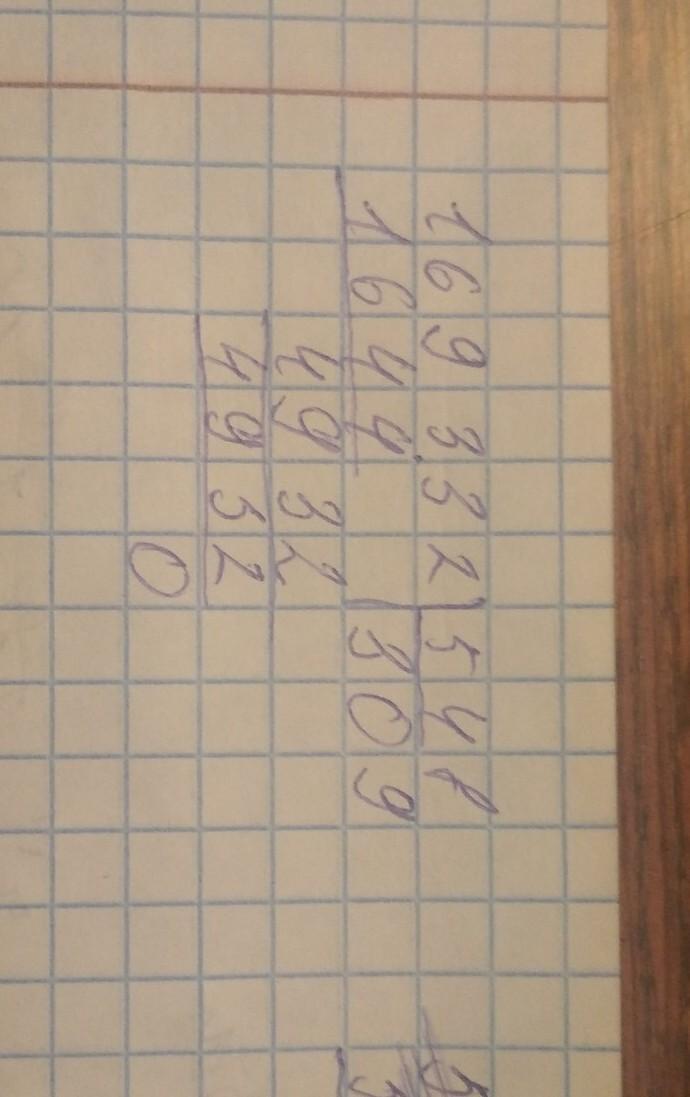 169332 548
1644 309
4932
4932
0